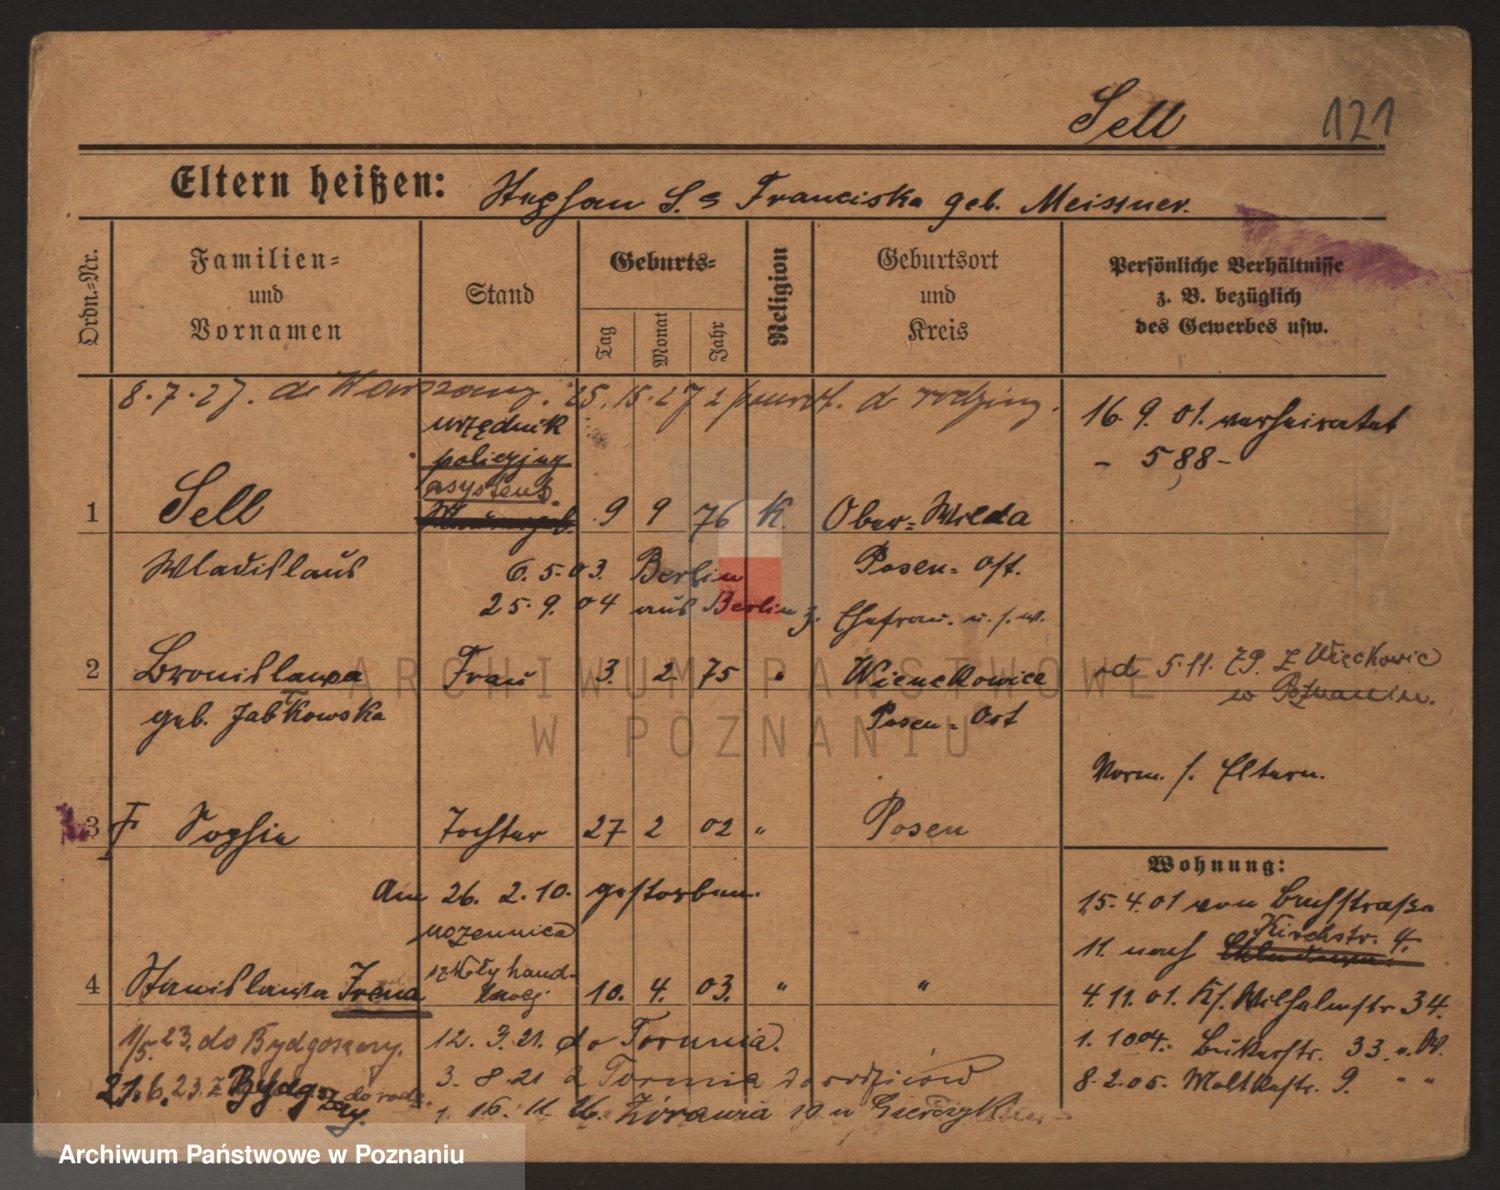 Sell 121
Eltern heißen: Stephan S. Franciska geb. Meissner.
Ordn.-Nr.
Familien- und Vornamen
Stand
Geburts-
Tag
Monat
Jahr
Religion
Geburtsort und Kreis
Persönliche Verhältnisse z. B. bezüglich des Gewerbes usw.
8.7.27. do Warszawy. z powrot. d rodziny.
16. 9. 01. verheiratet
- 588 -
urzędnik
policyjny
asystent
1 Sell 9 9 76 K. Ober-Wilda
Wladislaus 6. 5. 03. Berlin Posen-Ost.
25. 9. 04 aus Berlin z. Ehefrau u. s. w.
2 Bronislawa Frau 3. 2 75 " Wienckowice
od 5.11. z Więckowic
w Poznaniu.
geb. Jabkowska Posen-Ost
Norm. s. Eltern.
3 Sophie Tochter 27 2 02 " Posen
Am 26. 2. 10. gestorben.
Wohnung:
15. 4. 01 von Bruchstraße
11. nach Kirchstr. 4.
uczennica
szkoły handlowej
4 Stanislawa Irena 10. 4. 03. " "
4. 11. 01. K. Wilhelmstr 34.
1. 10 04. Bukerstr. 33. a. W.
8. 2. 05. Moltkestr. 9. " "
1/5. 23. do Bydgoszczy. 12. 3. 21. do Torunia.
21. 6. 23. z Bydgoszczy. do rodz. 3. 8. 21 z Torunia do rodziców
16. 11. 26.
ARCHIWUM PAŃSTWOWE
W POZNANIU
Archiwum Państwowe w Poznaniu